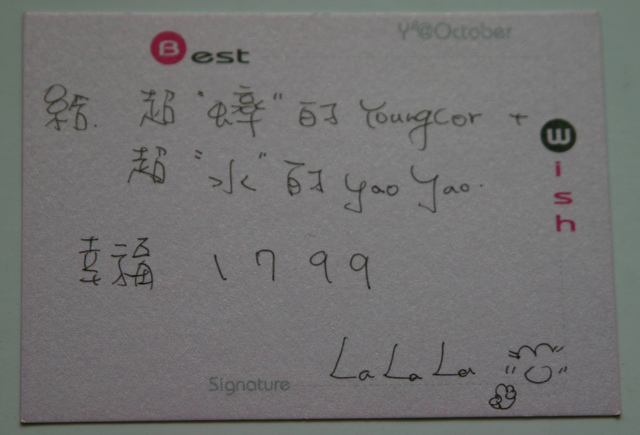 Y²@October
Best
Wish
給. 超"蟑"的 Youngcor +
超"水"的 yao yao.
幸福 1799
LaLaLa
Signature